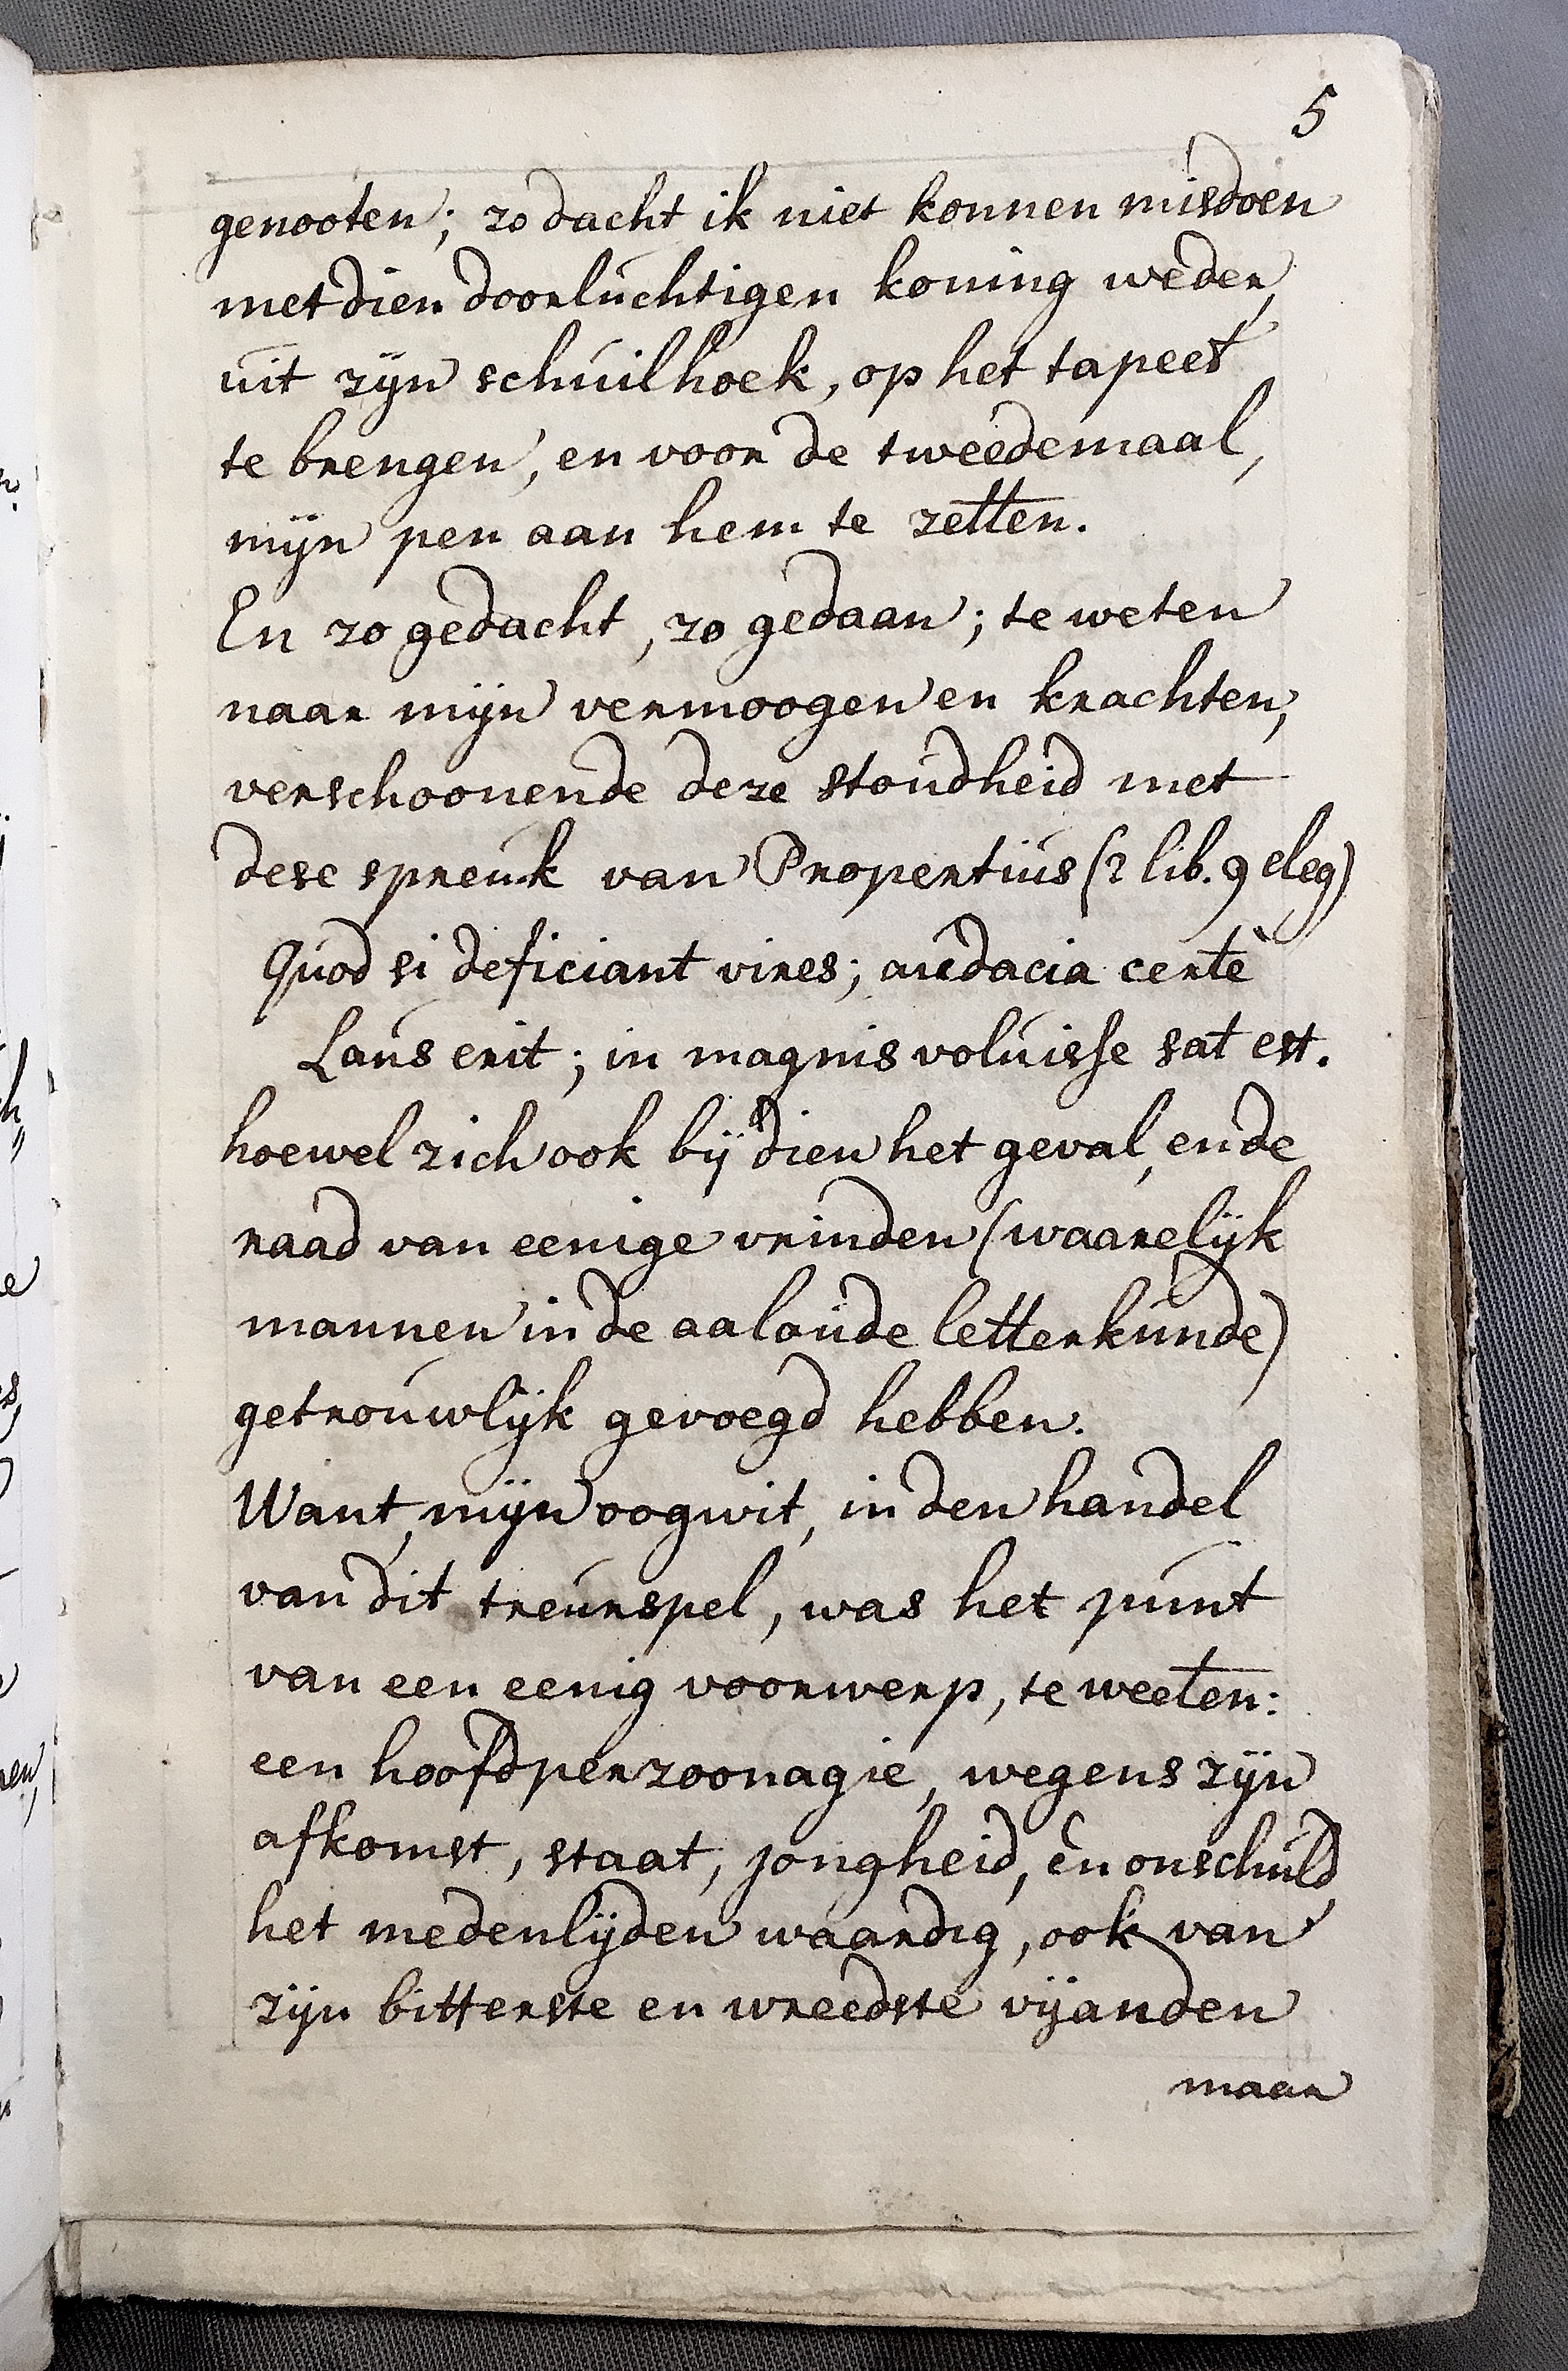 5
genooten; zo dacht ik niet konnen misdoen
met dien doorluchtigen koning weder,
uit zijn schuilhoek, op het tapeet
te brengen, en voor de tweedemaal,
mijn pen aan hem te zetten.
En zo gedacht, zo gedaan; te weten
naar mijn vermoogen en krachten,
verschoonende deze stoudheid met
dese spreuk van Propertius (2 lib. 9 eleg)
Quod si deficiant vires; audacia certè
Laus erit; in magnis voluisse sat est.
hoewel zich ook bij dien het geval, en de
raad van eenige vrinden (waarelijk
mannen in de aaloude letterkunde)
getrouwlijk gevoegd hebben.
Want, mijn oogwit, in den handel
van dit treurspel, was het punt
van een eenig voorwerp, te weeten:
een hoofdperzoonagie, wegens zijn
afkomst, staat, jongheid, èn onschuld
het medenlijden waardig, ook van
zijn bitterste en wreedste vijanden
maar